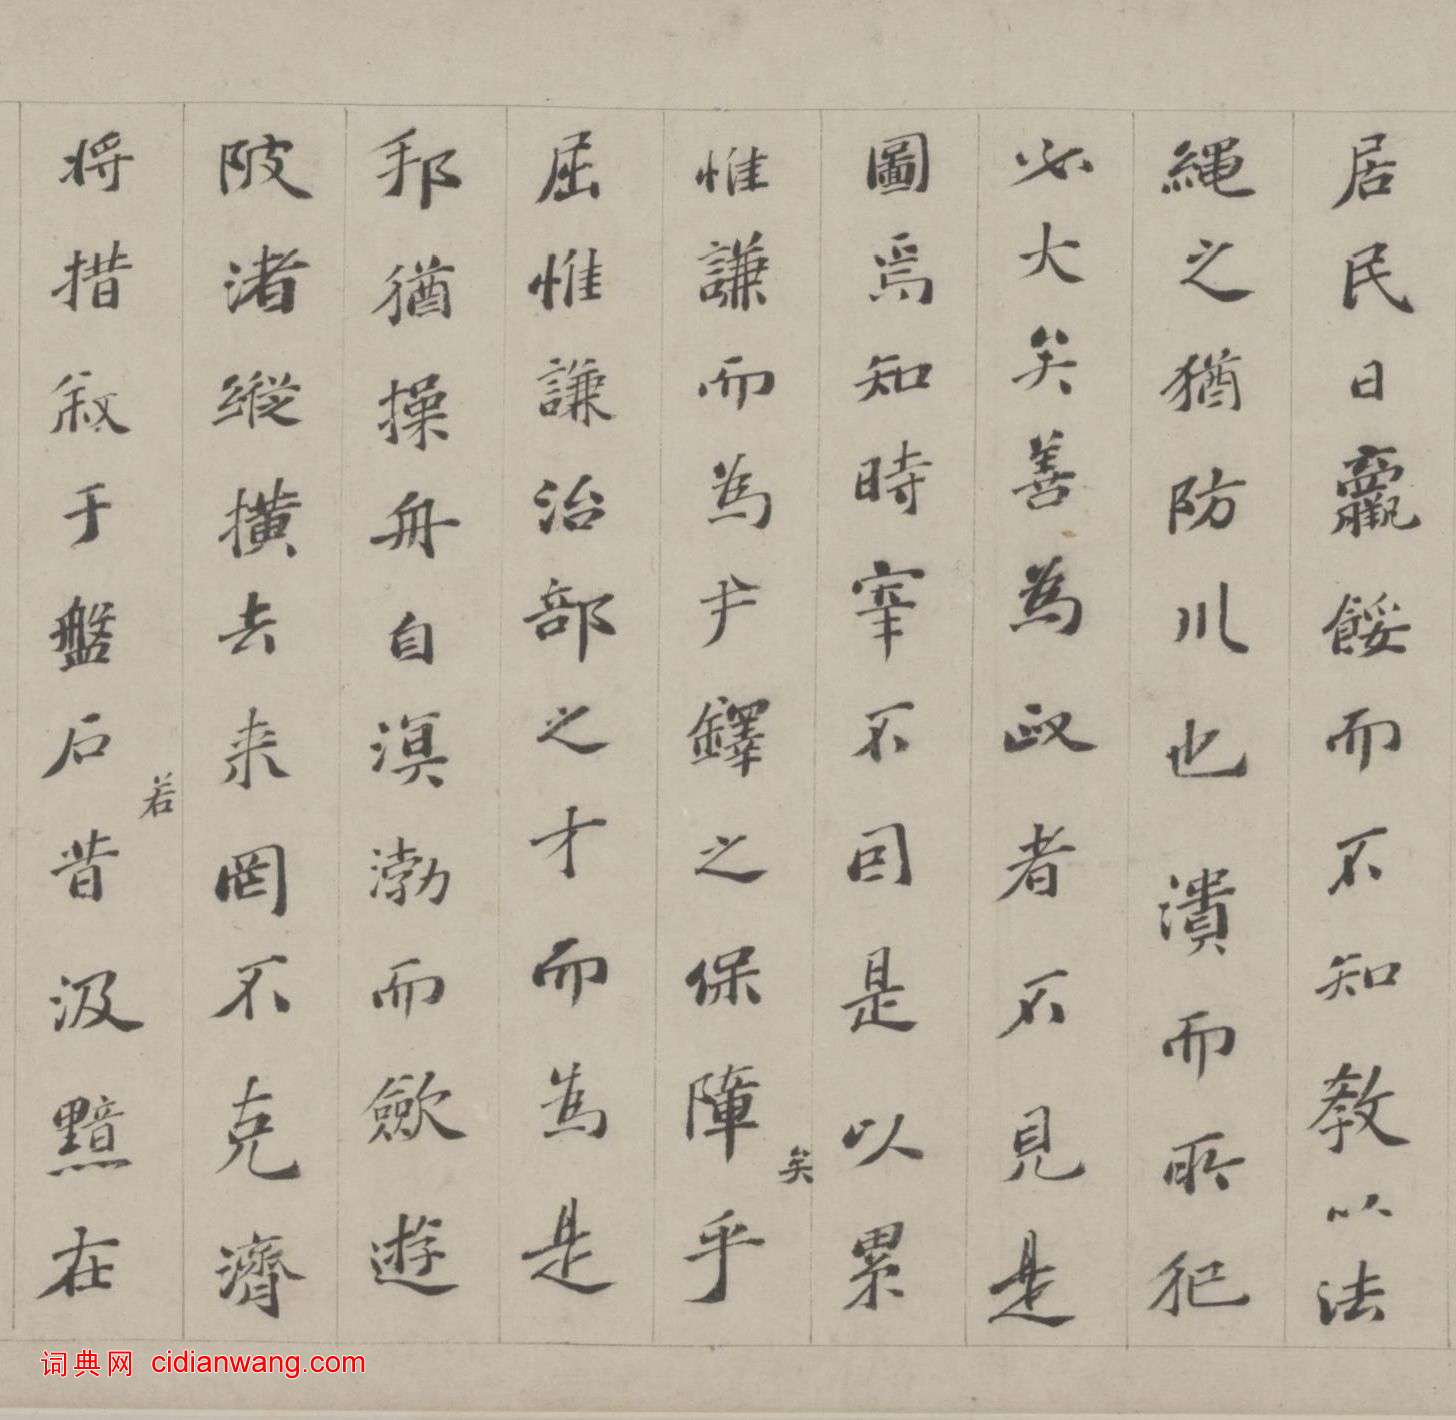 居民日羸餒而不知教以法
繩之猶防川也潰而所犯
必大矣善為政者不見是
圖焉知時宰不回是以累
惟謙而為尹鐸之保障乎
矣
屈惟謙治部之才而為是
邦猶操舟自溟渤而歛遊
陂渚縱橫去来罔不克濟
若
将措叙于盤石昔汲黯在
词典网 cidianwang.com